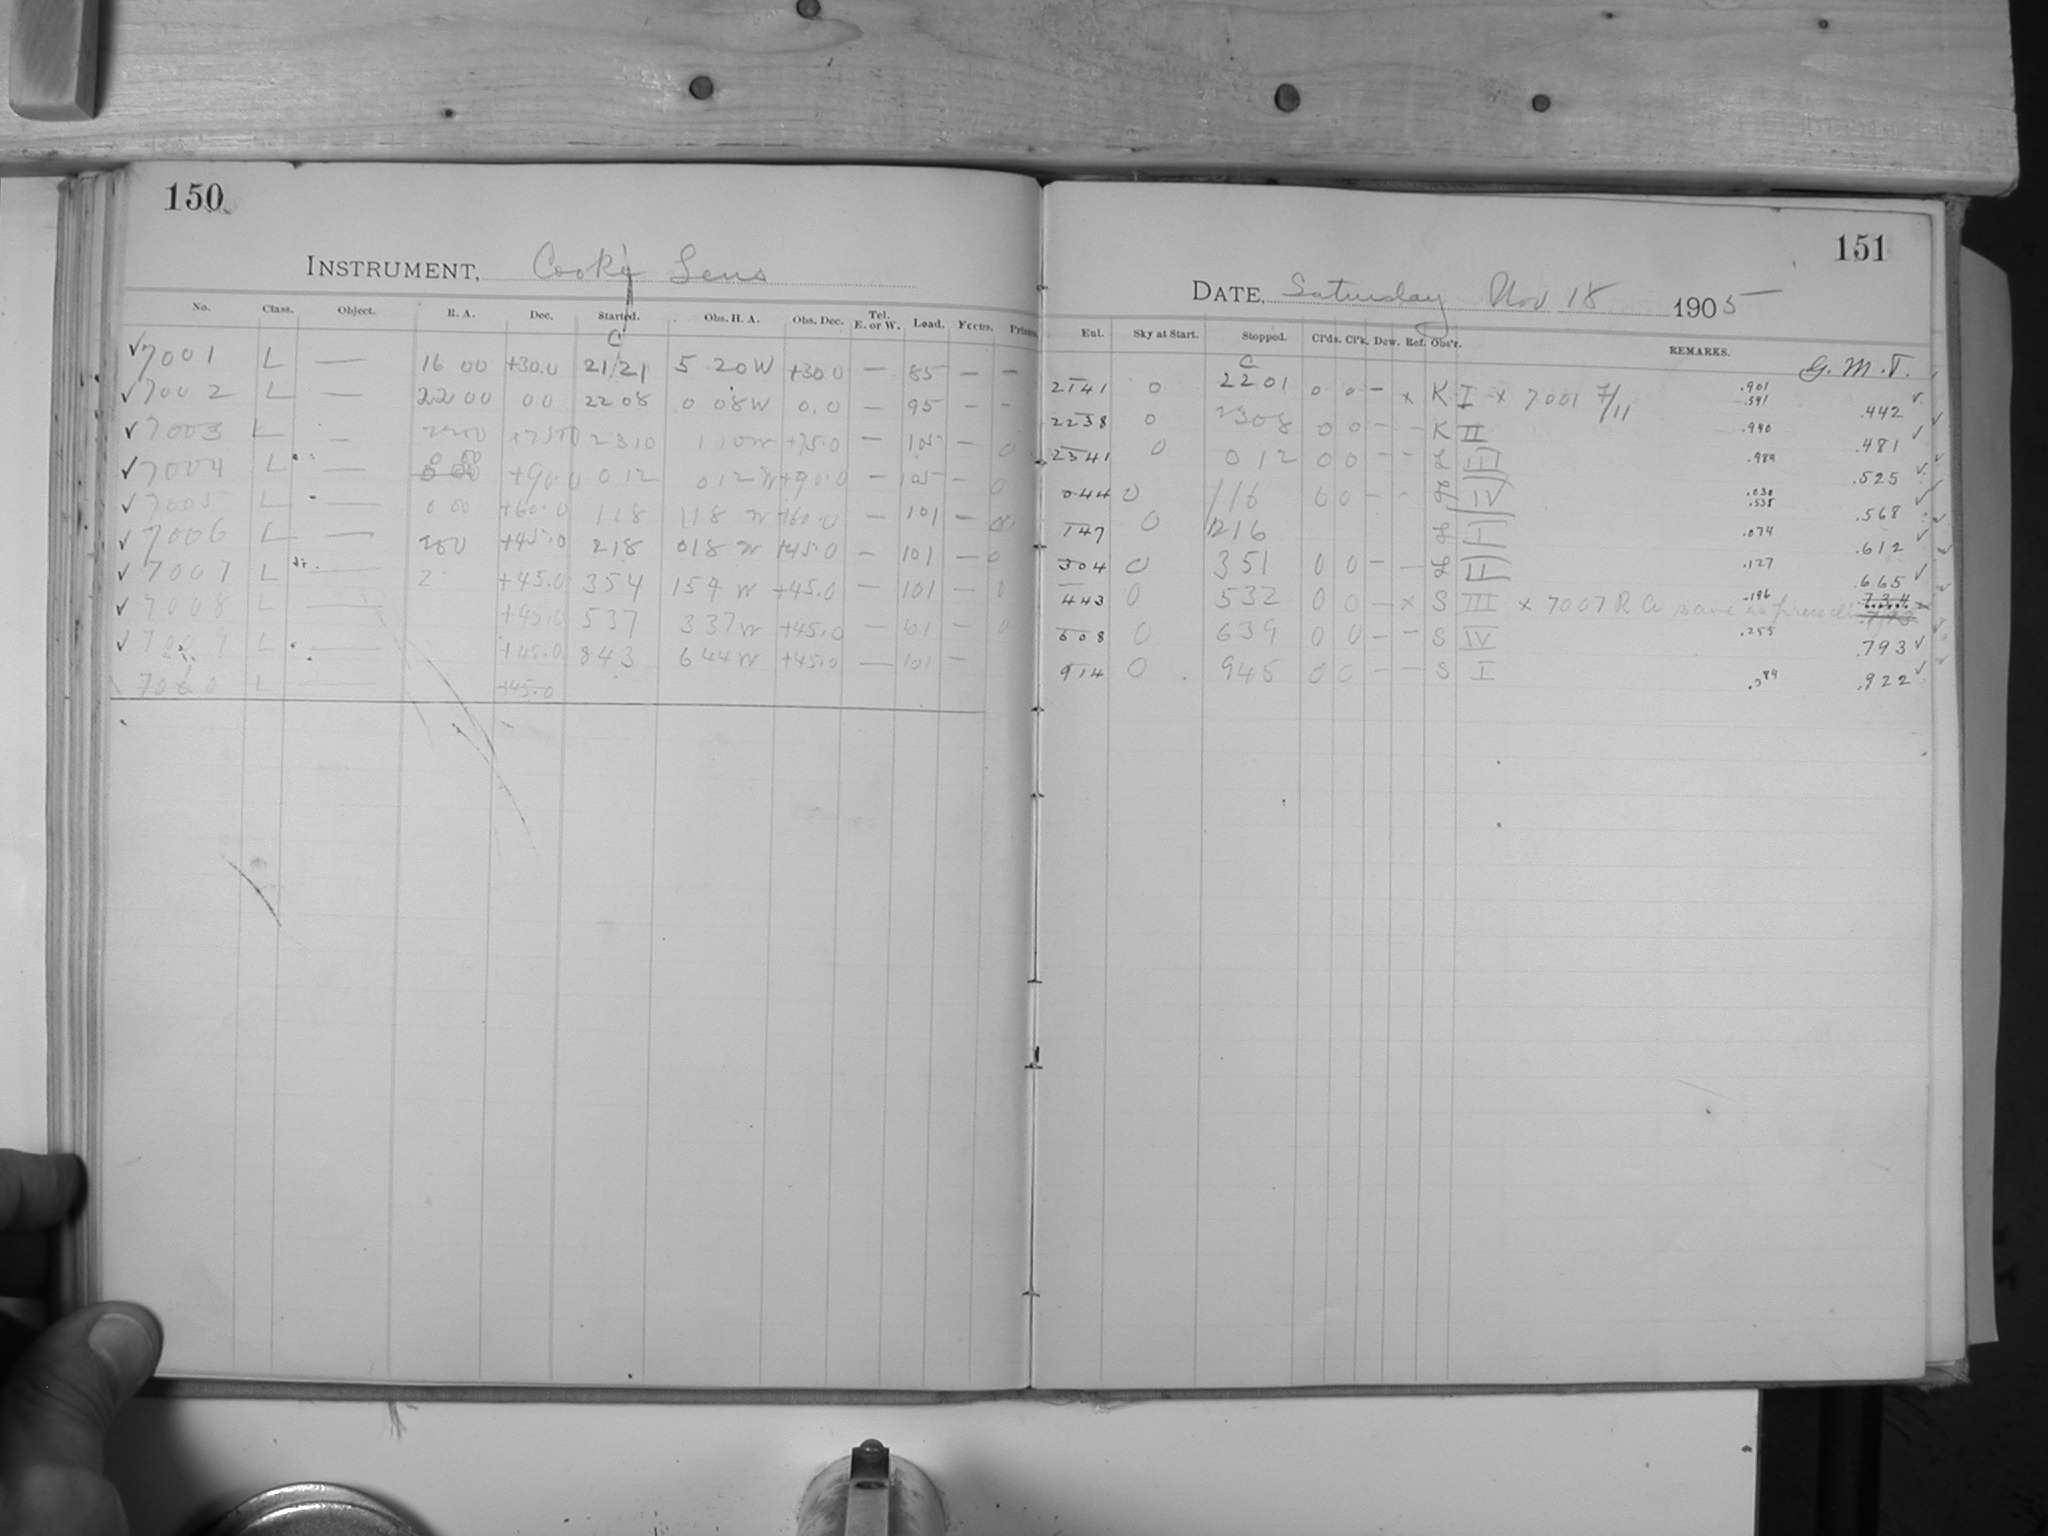 150
INSTRUMENT, Cooke Lens
No. Class. Object. R. A. Dec. Started. Obs. H. A. Obs. Dec. Tel. E. or W. Load. Focus. Prisms
C
✓7001 L — 16 00 +30.0 21 21 5 20 W +30.0 — 85 — —
✓7002 L — 22 00 0.0 22 08 0 08 W 0.0 — 95 - -
✓7003 L — +75.0 23 10 1 10 W +75.0 — 105 — 0
✓7004 L 0 00 +90.0 0 12 0 12 W +90.0 — 105 — 0
✓7005 L — 0 00 +60.0 1 18 1 18 W +60.0 — 101 — 0
✓7006 L — 200 +45.0 2 18 0 18 W +45.0 — 101 — 0
✓7007 L — 2 +45.0 3 54 1 54 W +45.0 — 101 — 0
✓7008 L — +45.0 5 37 3 37 W +45.0 — 101 — 0
✓7009 L — +45.0 8 43 6 44 W +45.0 — 101 —
L +45.0
151
DATE, Saturday Nov 18 1905
Enl. Sky at Start. Stopped. Cl'ds. Cl'k. Dew. Ref. Obs'r. REMARKS. G. M. T.
C
21 41 0 22 01 0 0 - x K I x 7001 7/11 .901 .541 .442 ✓
22 38 0 23 08 0 0 - - K II .940 .481 ✓
23 41 0 0 12 0 0 - - L III .984 .525 ✓
0 44 0 1 16 0 0 - - IV .030 .538 .568 ✓
1 47 0 2 16 L I .074 .612 ✓
3 04 0 3 51 0 0 - - L II .127 .665 ✓
4 43 0 5 32 0 0 - x S III x 7007 R A same as .196 .734
6 08 0 6 39 0 0 - - S IV .255 .793 ✓
9 14 0 9 45 0 0 - - S I .384 .922 ✓